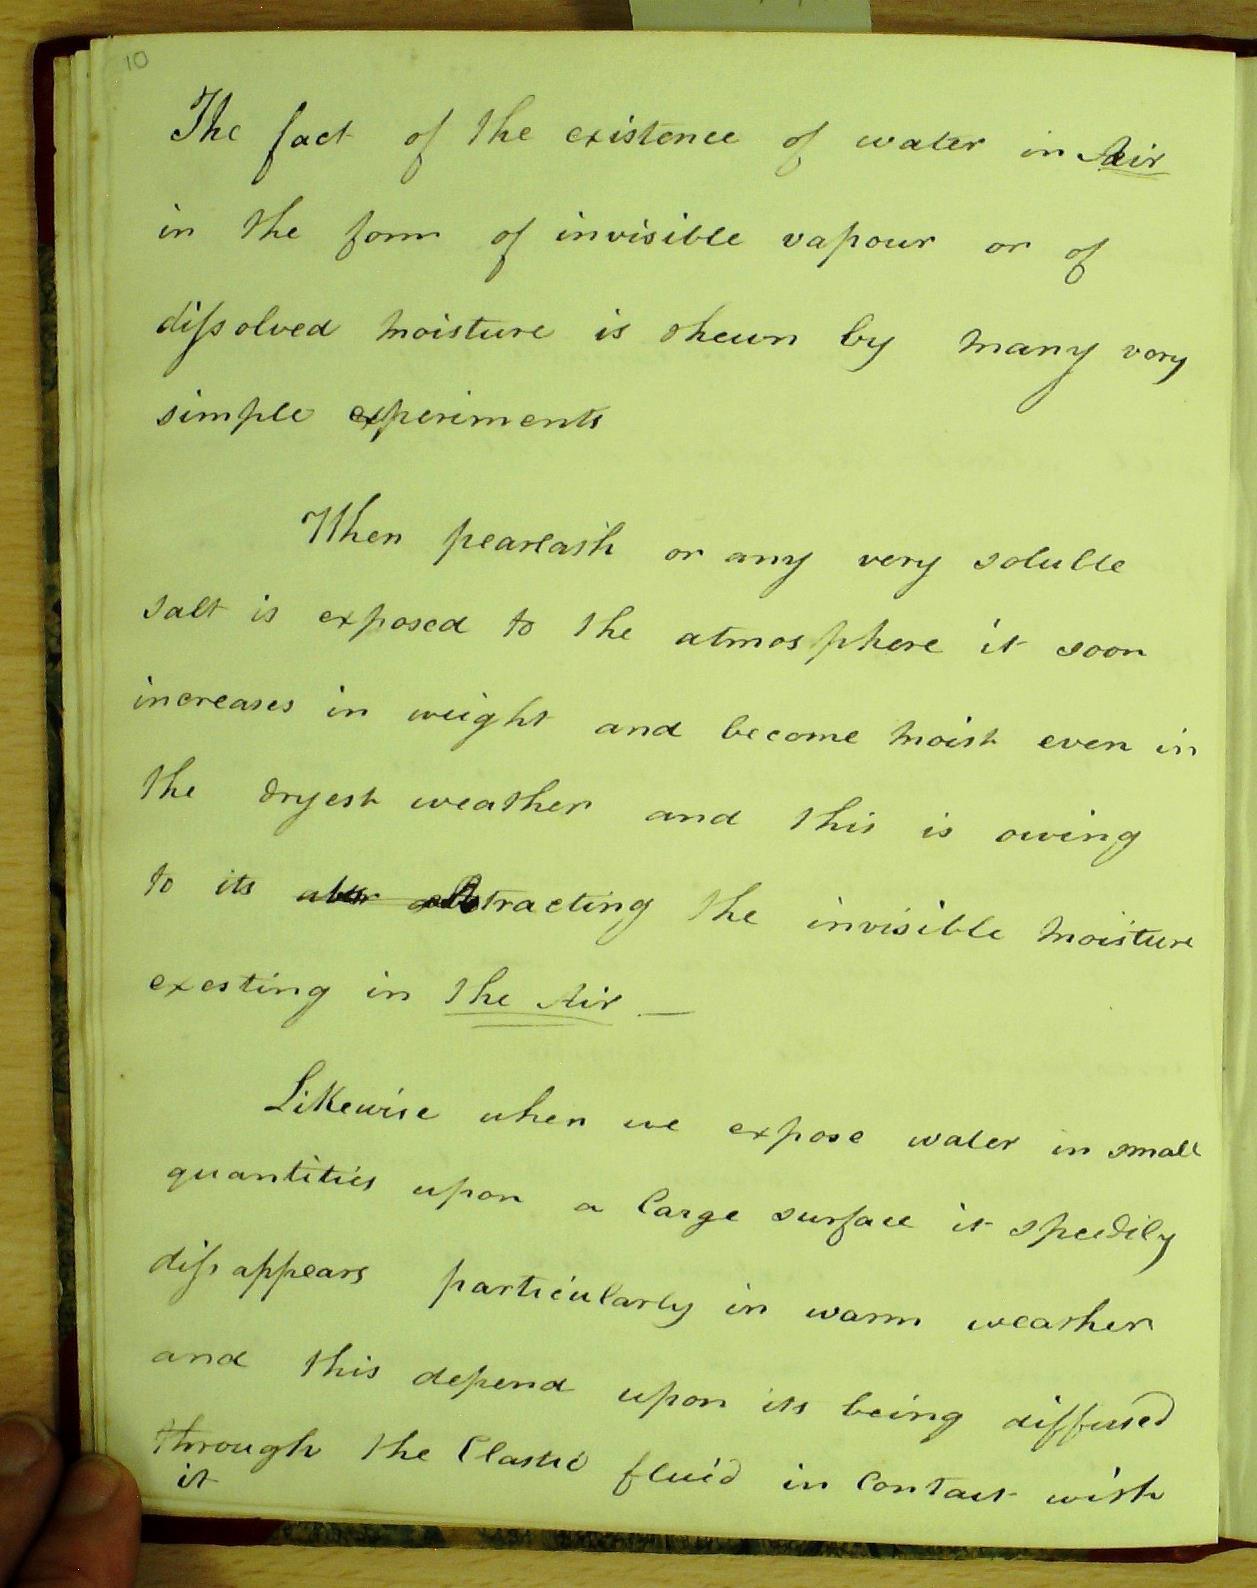 10
The fact of the existence of water in Air
in the form of invisible vapour or of
dissolved moisture is shewn by many very
simple experiments
When pearlash or any very soluble
salt is exposed to the atmosphere it soon
increases in weight and become moist even in
the dryest weather and this is owing
to its abstracting the invisible moisture
exesting in the Air _
Likewise when we expose water in small
quantities upon a large surface it speedily
dissappears particularly in warm weather
and this depend upon its being diffused
through the Elastic fluid in Contact with
it